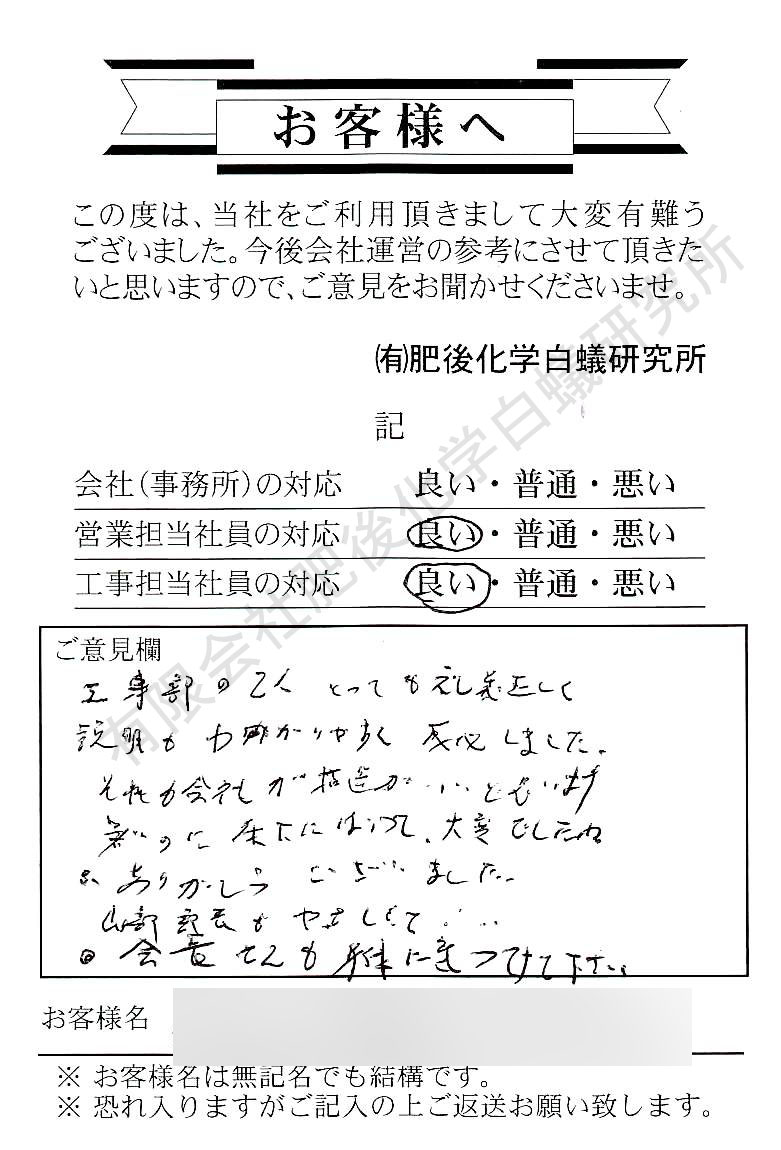 お客様へ
この度は、当社をご利用頂きまして大変有難う
ございました。今後会社運営の参考にさせて頂きた
いと思いますので、ご意見をお聞かせくださいませ。
㈲肥後化学白蟻研究所
記
会社(事務所)の対応 良い・普通・悪い
営業担当社員の対応 良い・普通・悪い
工事担当社員の対応 良い・普通・悪い
ご意見欄
工事部の2人 とっても礼儀正しく
説明も わかりやすく しました。
それも会社が いいと思います
暑いのに 床下に 大変でしたね
ありがとうございました。
山部 も やさしくて
会長さんも 身体に気つけて下さい
お客様名
※ お客様名は無記名でも結構です。
※ 恐れ入りますがご記入の上ご返送お願い致します。
有限会社肥後化学白蟻研究所